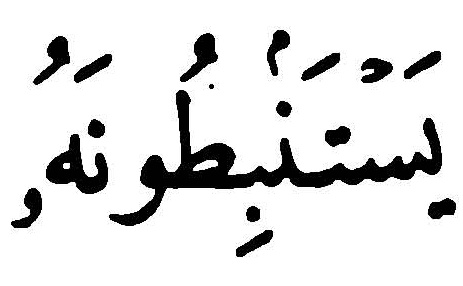 يَسْتَنۢبِطُونَهُۥ